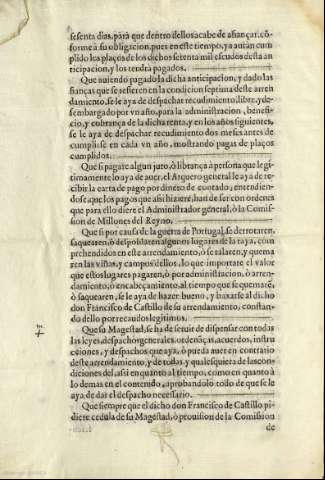 sesenta dias, para que dentro dellos acabe de afiançar, cõ-
forme à su obligacion, pues en este tiempo, ya auràn cum-
plido los plaços de los dichos setenta mil escudos desta an
ticipacion, y los tendrà pagados.
Que auiendo pagado la dicha anticipacion, y dado las
fianças que se refieren en la condicion septima deste arren
damiento, se le aya de despachar recudimiento libre, y de-
sembargado por vn año, para la administracion, benefi-
cio, y cobrança de la dicha renta, y en los años siguientes,
se le aya de despachar recudimiento dos meses antes de
cumplirse en cada vn año, mostrando pagas de plaços
cumplidos.
Que si pagare algun juro, ò librança à persona que legi-
timamente lo aya de auer, el Arquero general le aya de re-
cibir la carta de pago por dinero de contado, entendien-
dose que los pagos que assi hiziere, han de ser con ordenes
que para ello diere el Administrador general, ò la Comis-
sion de Millones del Reyno.
Que si por causa de la guerra de Portugal, se derrotaren,
saquearen, ò despoblaren algunos lugares de la raya, com
prehendidos en este arrendamiento, ò se talaren, y quema
ren las viñas, y campos dellos, lo que importare el valor
que estos lugares pagaren, ò por administracion, ò arren-
damiento, ò encabeçamiento, al tiempo que se quemarẽ,
ò saquearen, se le aya de hazer bueno, y baxarse al dicho
don Francisco de Castillo de su arrendamiento, constan-
do dello por recaudos legitimos.
Que su Magestad, se ha de seruir de dispensar con todas
las leyes, despachos generales, ordenãças, acuerdos, instru
cciones, y despachos que aya, ò pueda auer en contrario
deste arrendamiento, y de todas, y qualesquiera de las con
diciones del, assi en quanto al tiempo, como en quanto à
lo demas en el contenido, aprobandolo todo de que se le
aya de dar el despacho necessario.
Que siempre que el dicho don Francisco de Castillo pi-
diere cedula de su Magestad, ò prouision de la Comission
de